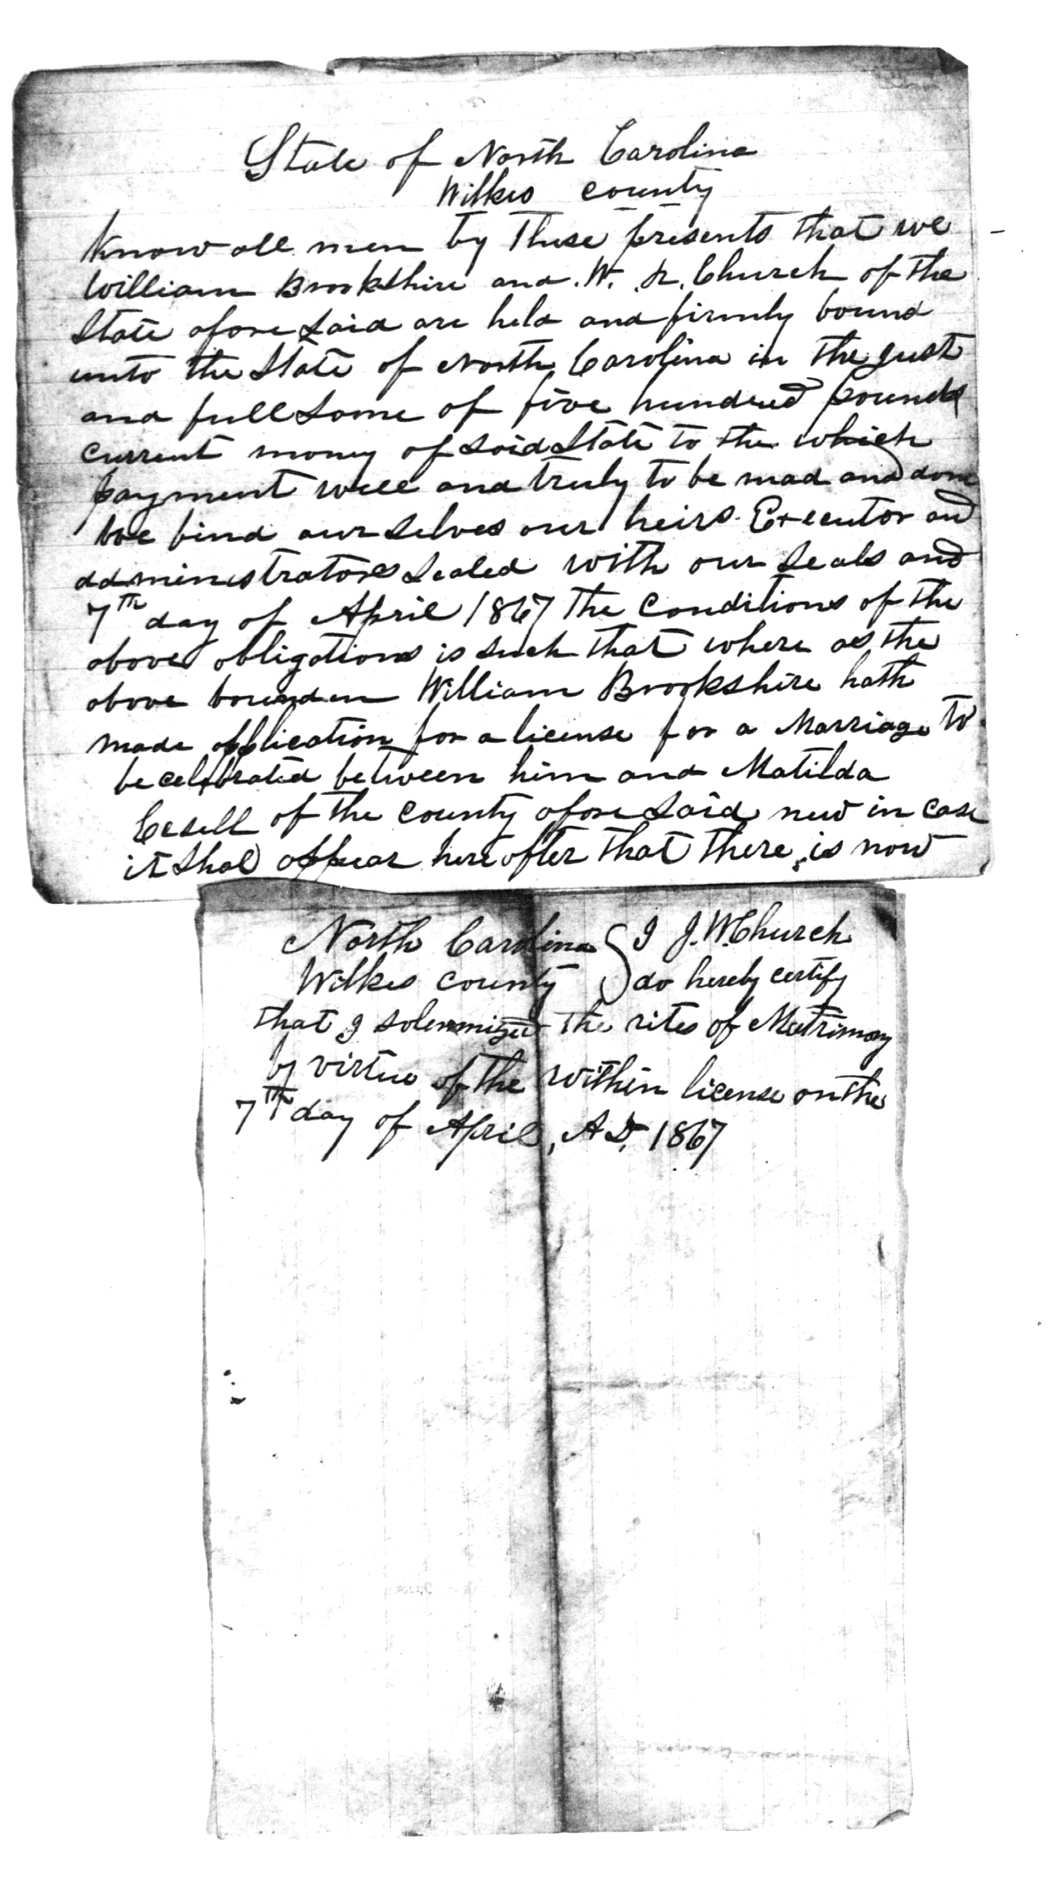 State of North Carolina
Wilkes county
Know all men by These presents that we
William Brookshire and W. R. Church of the
State afore Said are held and firmly bound
unto the State of North Carolina in the just
and full Some of five hundred pounds
current money of said State to the which
payment well and truly to be mad and don
we bind our selves our heirs Executor and
administrators Sealed with our Seals and
7th day of April 1867 The Conditions of the
above obligations is such that where as the
above bounden William Brookshire hath
made application for a license for a Marriage to
be celebrated between him and Matilda
of the county afore Said now in case
it Shal appear here after that there is now
North Carolina } I J. W. Church
Wilkes county } do hereby certify
that I solemnized the rites of Matrimony
by virtue of the within license on the
7th day of April, A.D. 1867